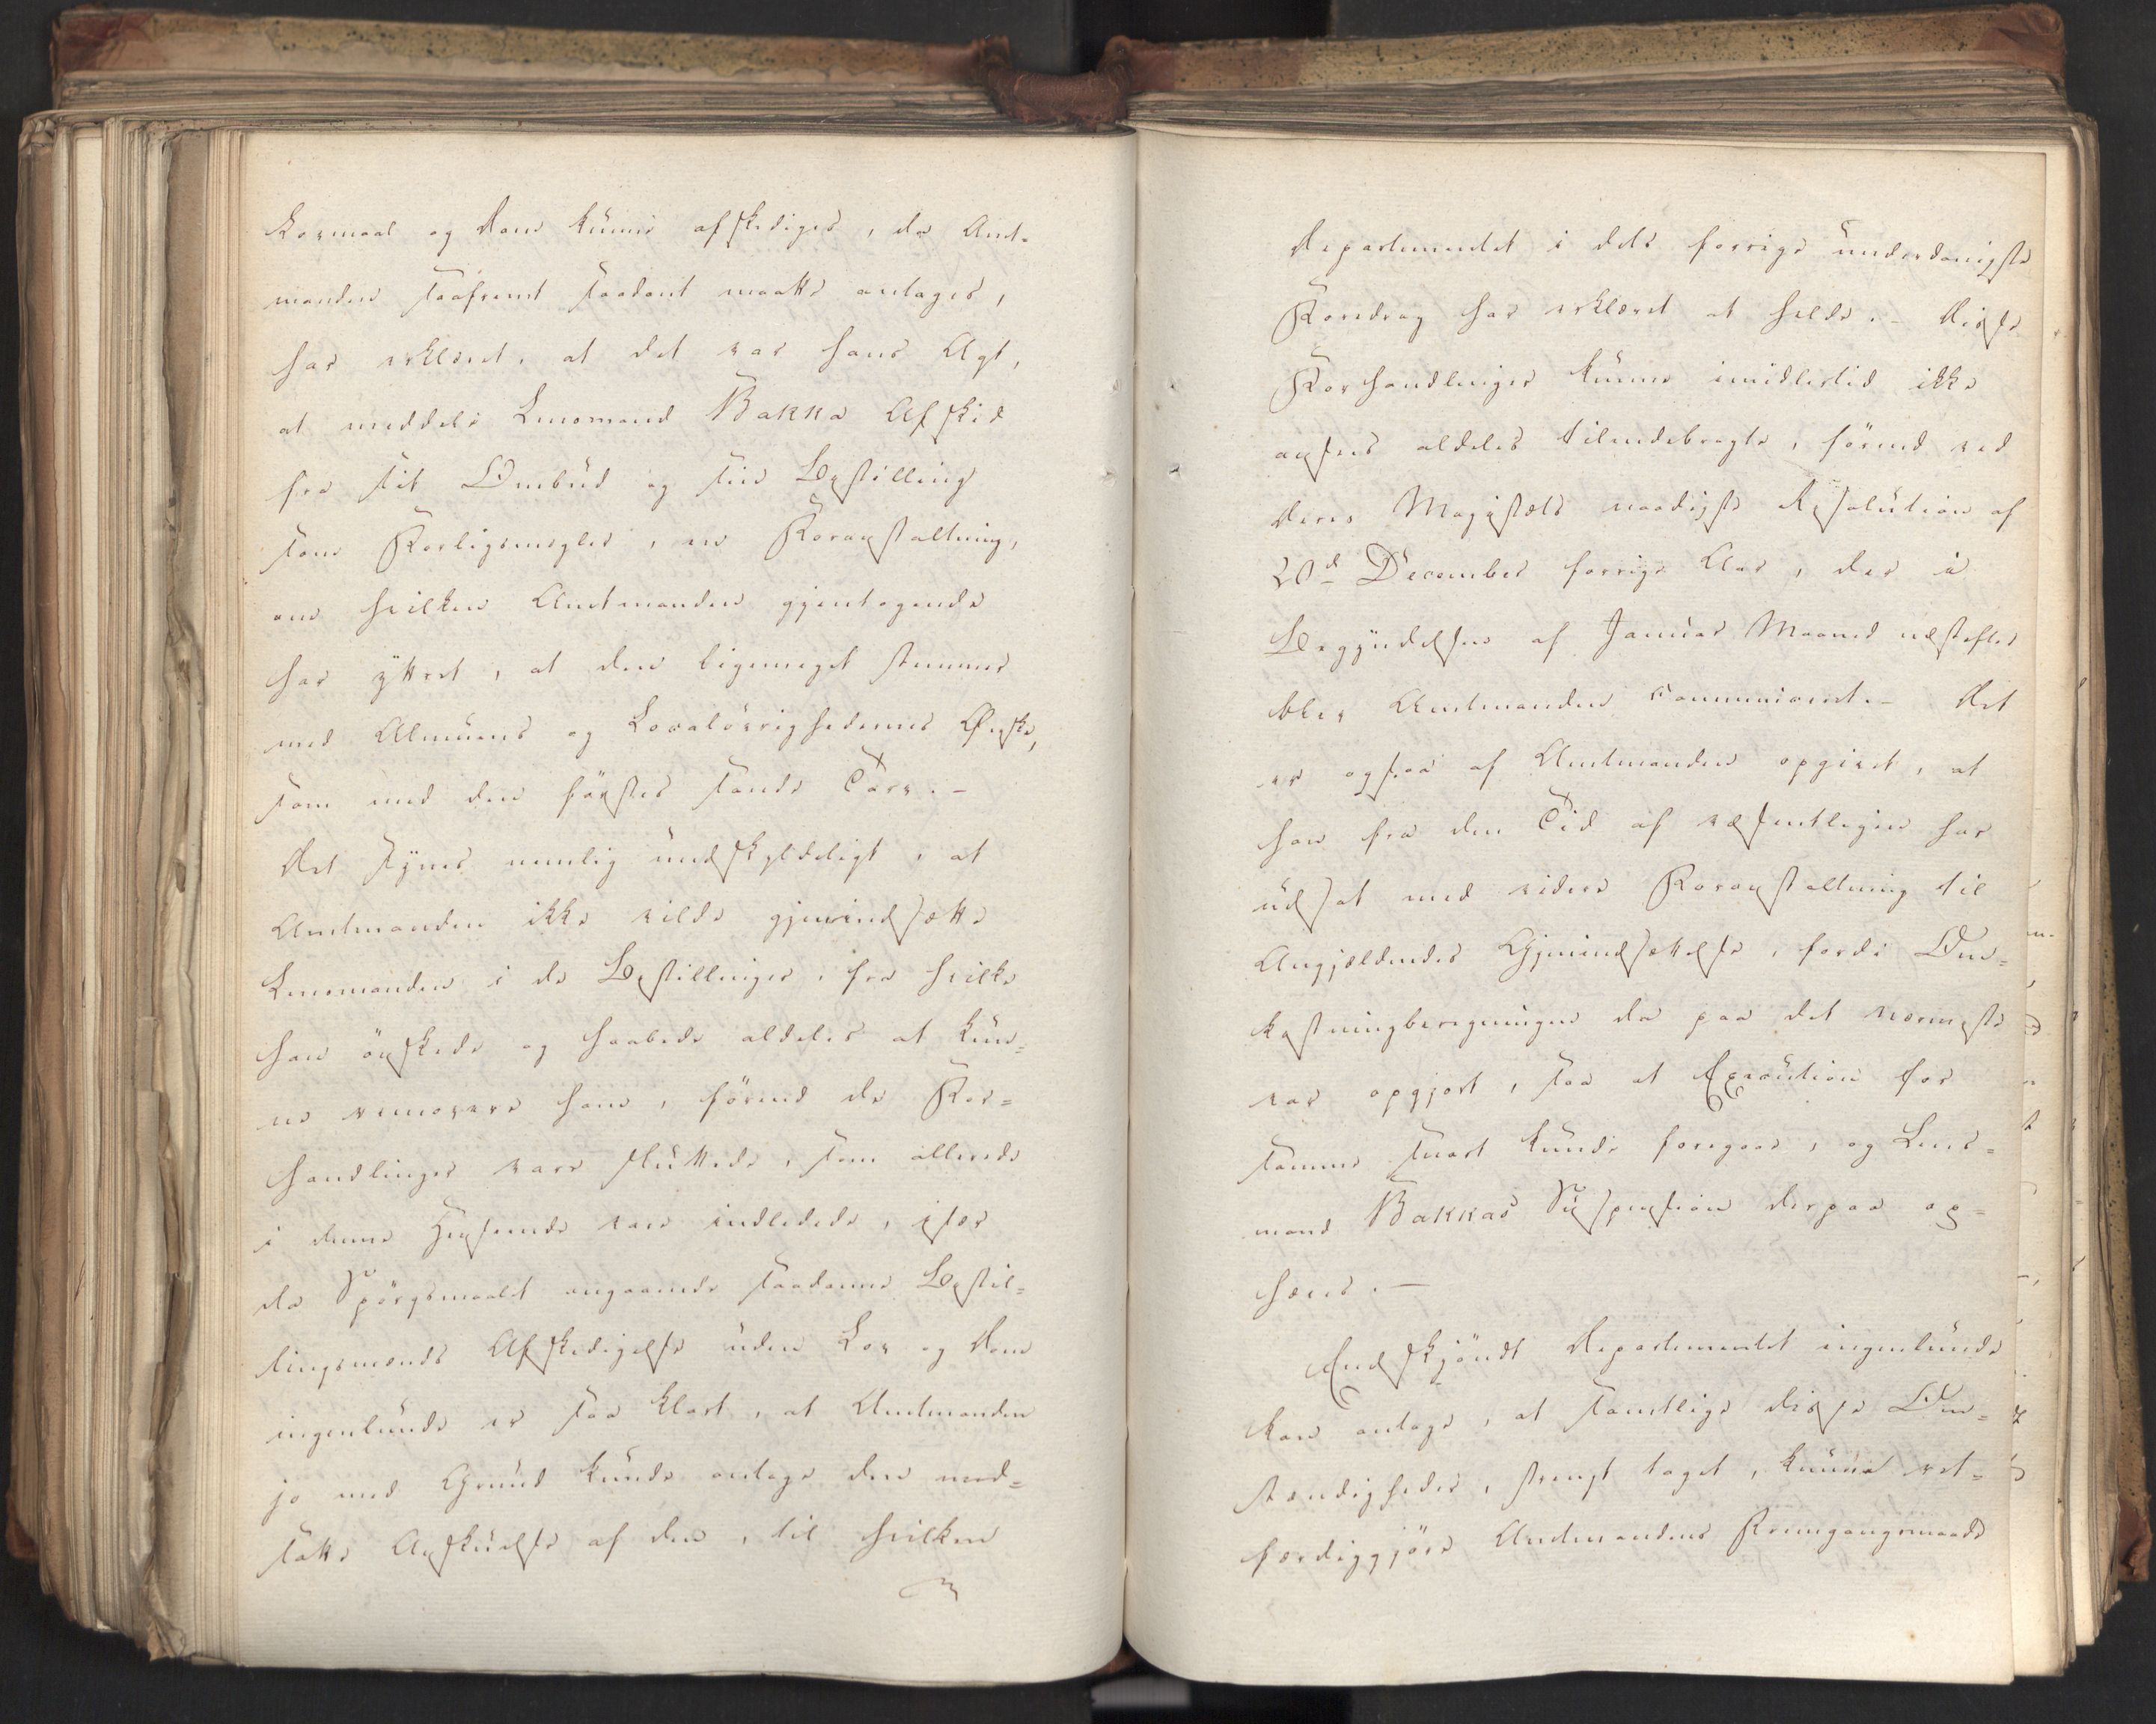 Lovmaal og Dom kunne afskediges, da Amt-
manden saafremt saadant maatte antages,
har erklæret, at det var hans Agt,
at meddele Lensmand Bakka Afsked
fra sit Ombud og sin Bestilling
som Forligsmægler, en Foranstaltning,
om hvilken Amtmanden gjentagende
har yttret, at den ligemeget stemmer
med Almuens og Localøvrighedernes Ønske,
som med den førstes sande Tarv. -
Det synes nemlig undskyldeligt, at
Amtmanden ikke vilde gjenindsætte
Lensmanden i de Bestillinger, fra hvilke
han ønskede og haabede aldeles at kun=
ne removere ham, førend de For=
handlinger vare sluttede, som allerede
i denne Henseende vare indledede, især
da Spørgsmaalet angaaende saadanne Bestil=
lingsmænds Afskedigelse uden Lov og Dom
ingenlunde er saa klart, at Amtmanden
jo med Grund kunde antage den mod=
satte Anskuelse af den, til hvilken
Departementet i dets forrige underdanigste
Foredrag har erklæret at helde. - Disse
Forhandlinger kunne imidlertid ikke
ansees aldeles tilendebragte, førend ved
Deres Majestæts naadigste Resolution af
20d December forrige Aar, der i
Begyndelsen af Januar Maaned næstefter
blev Amtmanden communiceret. - Det
er ogsaa af Amtmanden opgivet, at
han fra den Tid af væsentligen har
udsat med videre Foranstaltning til
Angjældendes Gjenindsættelse, fordi Om=
kostningberegningen da paa det nærmeste
var opgjort, saa at Execution for
samme snart kunde foregaae, og Lens=
mand Bakkas Suspension derpaa op=
hæves. -
Endskjøndt Departementet ingenlunde
kan antage, at samtlige disse Om=
stændigheder, strengt taget, kunne ret=
færdiggjøre Amtmandens Fremgangsmaade